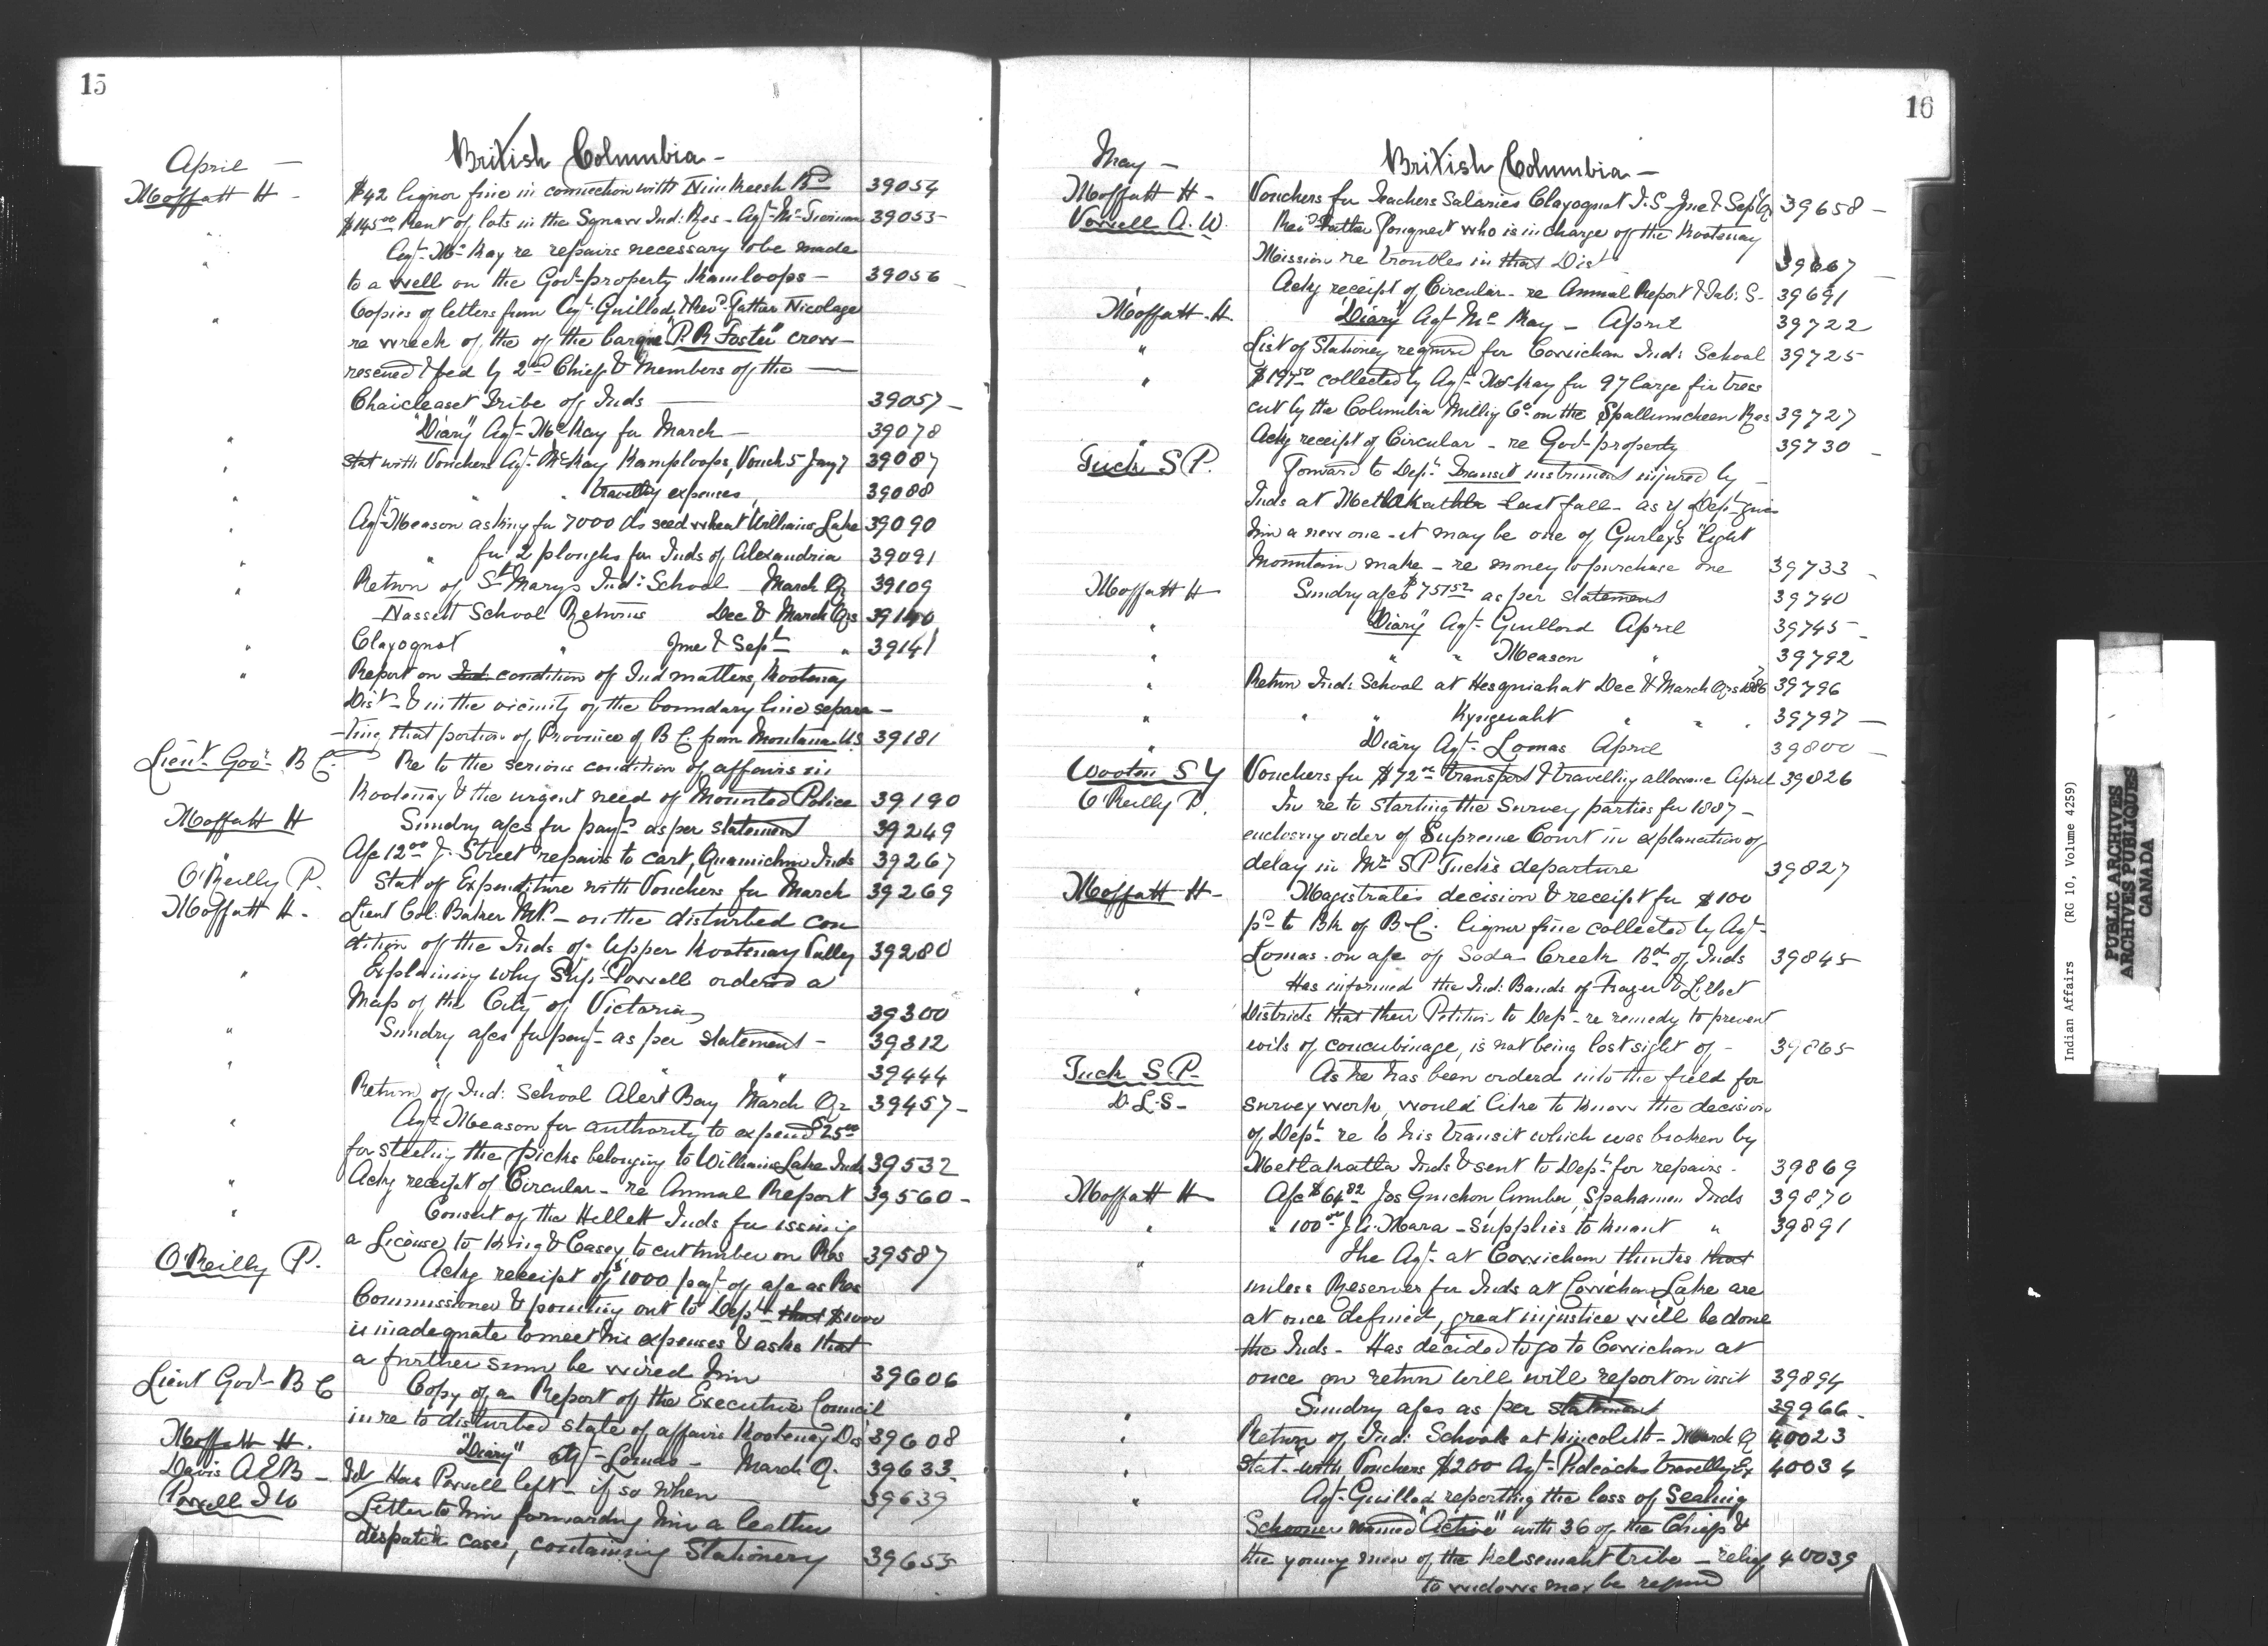 15
British Columbia -
April -
Moffatt H - $42 liquor fine in connection with Nimkeesh Bd 39054
" $145.00 Rent of lots in the Ind: Res - Agt- Mc 39055
" Agt- McKay re repairs necessary to be made
to a well on the Govt- property Kamloops - 39056
" Copies of letters from Agt- Guillod & Revd- Father Nicolaye
re wreck of the of the barque "P. R. Foster" crew -
rescued & fed by 2nd Chief & Members of the
Chaicleaset Tribe of Inds 39057 -
" "Diary" Agt- McKay for March - 39078
" Stat with Vouchers Agt- McKay Kamploops, Vouch 5 39087
" " " travellg expenses, 39088
" Agt- Meason asking for 7000 lbs seed wheat Williams Lake 39090
" " for 2 ploughs for Inds of Alexandria 39091
" Return of St Marys Ind: School - March Qr 39109
Massett School Returns Dec & March Qrs 39140
" Clayoquot " June & Sept " 39141
" Report on Ind: condition of Ind matters, Kootenay
Dist- & in the vicinity of the boundary line separa -
-ting that portion of Province of B C. from Montana U.S 39181
Lieut- Govr- B C. Re to the serious condition of affairs in
Kootenay & the urgent need of Mounted Police 39190
Moffatt H Sundry a/cs for payt- as per statement 39249
" A/c 12.00 J. Street repairs to cart, Quamichin Inds 39267
O'Reilly P. Stat of Expenditure with Vouchers for March 39269
Moffatt H - Lieut Col: Baker M.P. - on the disturbed con
dition of the Inds of Upper Kootenay Vally 39280
" Explaining why Supt- Powell ordered a
Map of the City of Victoria 39300
" Sundry a/cs for payt- as per statement - 39312
" " " " 39444
Return of Ind: School Alert Bay March Qr 39457 -
" Agt- Meason for authority to expend $25.00
for steeling the picks belonging to Williams Lake Inds 39532
" Ackg receipt of Circular - re Annual Report 39560 -
" Consent of the Inds for issuing
a License to King & Casey, to cut timber on Res 39587
O'Reilly P. Ackg receipt of $1000 payt- of a/c as Res
Commissioner & pointing out to Dept- that $1000
is inadequate to meet his expenses & asks that
a further sum be wired him 39606
Lieut Govr- B C Copy of a Report of the Executive Council
in re to disturbed state of affairs Kootenay Dis 39608
Moffatt H. "Diary" Agt- Lomas - March Q. 39633
Davis A E B - Has Powell left - if so when 39639
Powell I W Letter to him forwarding him a leather
despatch case, containing Stationery 39655
16
British Columbia -
May -
Moffatt H - Vouchers for Teachers Salaries Clayoquot I.S - June & Sept Qr 39658 -
Vowell A. W. Revd- Father Fouquet who is in charge of the Kootenay
Mission re troubles in that Dist 39667
Ackg receipt of Circular - re Annual Report & Tab: S - 39691
Moffatt - H. "Diary" Agt McKay - April 39722
" List of Stationery required for Cowichan Ind: School 39725
" $197.50 collected by Agt- McKay for 97 large fir trees
cut by the Columbia Millig Co- on the Spallumcheen Res 39727
" Ackg receipt of Circular - re Govt- property 39730
Tuck S P. Forward to Dept- Transit instrument injured by -
Inds at Metlakathla last fall - as if Dept- give
him a new one - it may be one of Gurley's "light
Mountain make - re money to purchase one 39733
Moffatt H Sundry a/cs $757.52 as per statement 39740
" "Diary" Agt- Guillod April 39745 -
" " " Meason " 39792
" Return Ind: School at Hesquiahat Dec & March Qrs 1886 39796
" " " Kyuquaht " " " 39797 -
" Diary Agt- Lomas April 39800 -
Wooton S Y Vouchers for $72.00 transport & travelling allowance April 39826
O'Reilly P. In re to starting the Survey parties for 1887 -
enclosing order of Supreme Court in explanation of
delay in Mr- S P Tuck's departure 39827
Moffatt H - Magistrates decision & receipt for $100
pd- to Bk of B-C. liquor fine collected by Agt-
Lomas - on a/c of Soda Creek Bd- of Inds 39845
" Has informed the Ind: Bands of Frazer & Lilloet
Districts that their Petition to Dept- re remedy to prevent
evils of concubinage, is not being lost sight of - 39865
Tuck S P. As he has been orderd into the field for
D. L. S - survey work, would like to know the decision
of Dept- re to his transit which was broken by
Metlakatla Inds & sent to Dept- for repairs - 39869
Moffatt H A/c $64.82 Jos Guichon lumber, Spahamen Inds 39870
" " 100.00 J. A. Mara - supplies to " 39891
" The Agt- at Cowichan thinks that
unless Reserves for Inds at Cowichan Lake are
at once defined, great injustice will be done
the Inds - Has decided to go to Cowichan at
once on return will will report on visit 39894
" Sundry a/cs as per statement 39966 -
" Return of Ind: Schools at Kincolith - March Q 40023
" Stat- with Vouchers $200 Agt- Pidcocks travellg Ex 40034
" Agt- Guillod reporting the loss of Sealing
Schooner named "Active" with 36 of the Chiefs &
the young men of the Kelsemaht tribe - relief 40039
to widows may be reqd
Indian Affairs (RG 10, Volume 4259)
PUBLIC ARCHIVES
ARCHIVES PUBLIQUES
CANADA